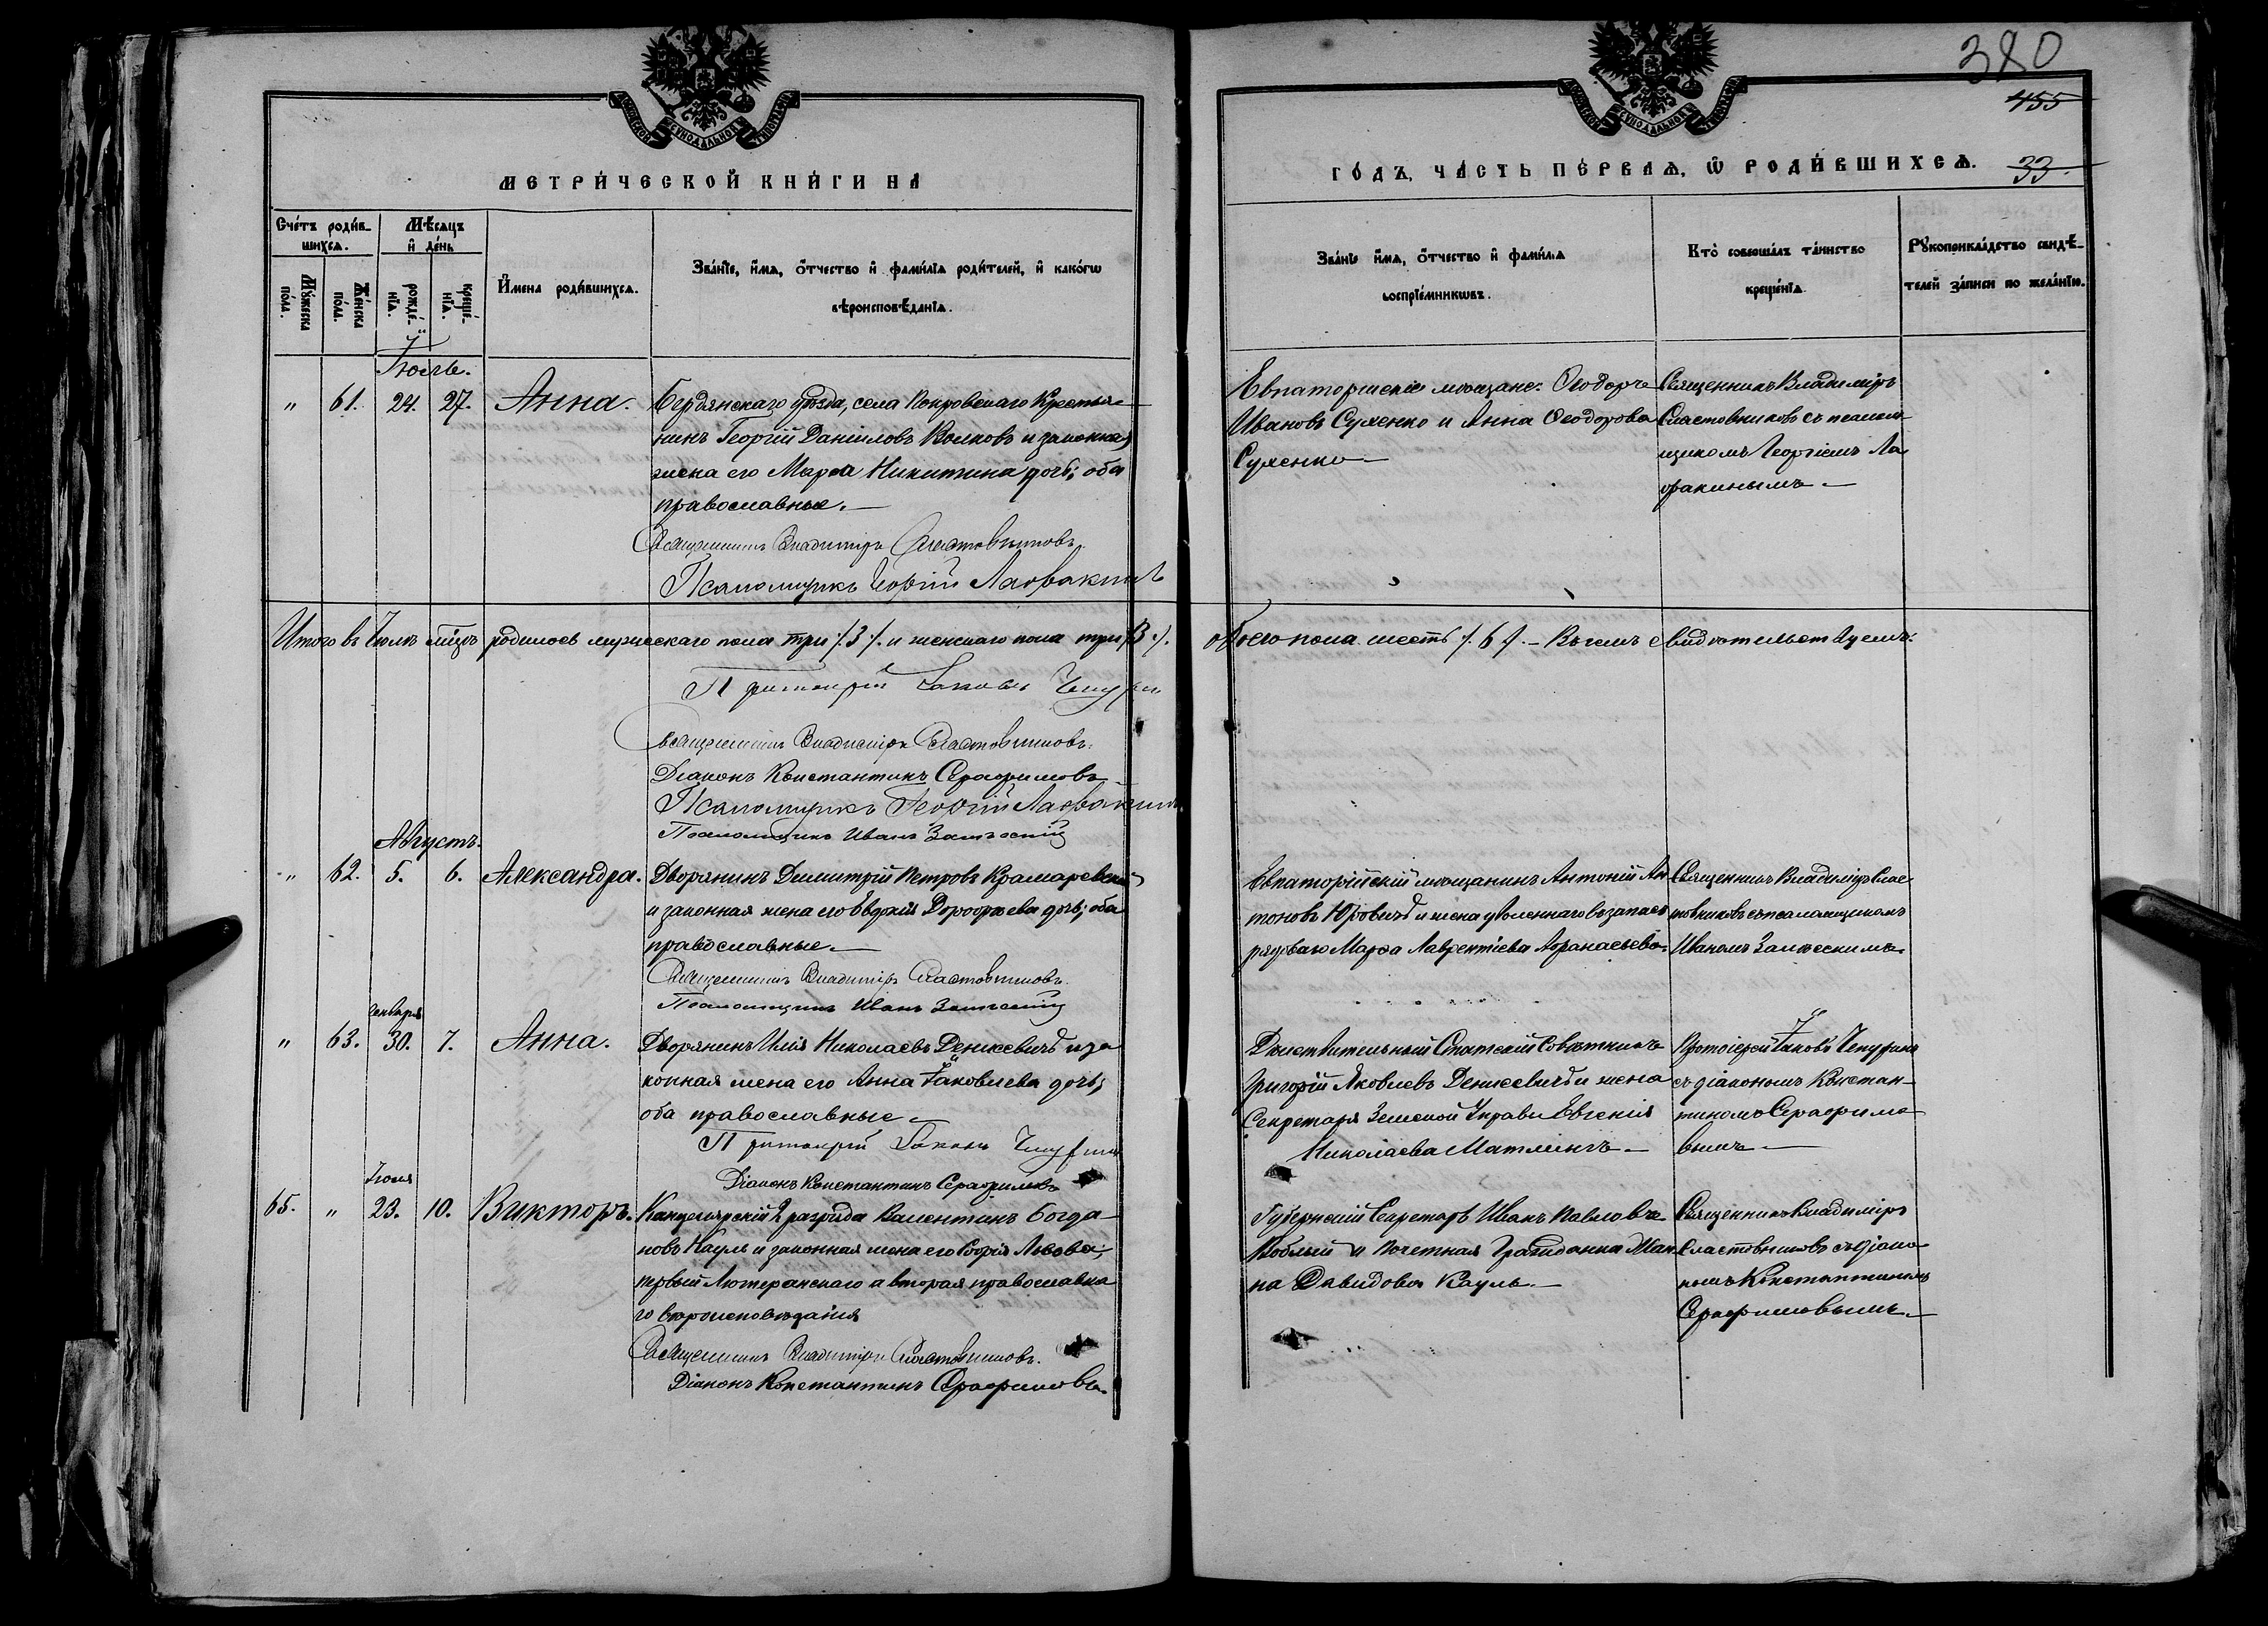 380
455
33
МЕТРИ́ЧЕСКОЙ КНИ́ГИ НА̀
ГО́ДЪ, ЧА́СТЬ ПЕ́РВАѦ, Ѡ҆ РОДИ́ВШИХСѦ.
Сче́тъ роди́в-
шихсѧ.
Мѣ́сѧцъ
и҆ де́нь
Мꙋ́жеска
по́ла.
Же́нска
по́ла.
рожде́-
нїѧ.
креще́-
нїѧ.
И҆мена роди́вшихсѧ.
Зва́нїе, и҆́мѧ, ѻ҆́тчество и҆ фами́лїѧ роди́телей, и҆ како́гѡ
вѣроисповѣ́данїѧ.
Зва́нїе и҆́мѧ, ѻ҆́тчество и҆ фами́лїѧ
воспрїе́мникѡвъ.
Кто̀ соверша́лъ та́инство
креще́нїѧ.
Рꙋкоприкла́дство свидѣ́-
телей за́писи по жела́нїю.
Іюль.
" 61. 24. 27. Анна.
Бердянскаго уѣзда, села Покровскаго Крестья-
нинъ Георгій Даніиловъ Волковъ и законная
жена его Марѳа Никитина дочь; оба
православные.—
Священникъ Владиміръ Сластовниковъ.
Псаломщикъ Георгій
Евпаторійскіе мѣщане: Ѳеодоръ
Ивановъ Сухенко и Анна Ѳеодорова
Сухенко—
Священникъ Владиміръ
Сластовниковъ съ псалом-
щикомъ Георгіемъ
Итого въ Іюлѣ мѣсяцѣ родилось мужескаго пола три /.3/. и женскаго пола три /.3/. обоего пола шесть /.6/.— Въ чемъ свидѣтельствуемъ:
Протоіерей Іаковъ Чепуринъ
Священникъ Владиміръ Сластовниковъ.
Діаконъ Константинъ Серафимовъ
Псаломщикъ Георгій
Псаломщикъ Иванъ
Августъ.
" 62. 5. 6. Александра.
Дворянинъ Димитрій Петровъ Крамаревскій
и законная жена его Евдокія Дороѳеева дочь; оба
православные.—
Священникъ Владиміръ Сластовниковъ.
Псаломщикъ Иванъ
Евпаторійскій мѣщанинъ Антоній Ан-
тоновъ Юровичъ и жена уволеннаго въ запасъ
рядоваго Марѳа Лаврентіева Аѳанасьева.
Священникъ Владиміръ Слас-
товниковъ съ псаломщикомъ
Иваномъ
Января
" 63. 30. 7. Анна.
Дворянинъ Илія Николаевъ Денисевичъ и за-
конная жена его Анна Іаковлева дочь;
оба православные.—
Протоіерей Іаковъ Чепуринъ
Діаконъ Константинъ Серафимовъ
Дѣйствительный Статскій Совѣтникъ
Григорій Яковлевъ Денисевичъ и жена
Секретаря Земской Управы Евгенія
Николаева
Протоіерей Іаковъ Чепуринъ
съ діакономъ Констан-
тиномъ Серафимо-
вымъ—
Іюля
65. " 23. 10. Викторъ.
Канцелярскій 2 разряда Валентинъ Богда-
новъ Кауль и законная жена его Софія Львова;
первый Лютеранскаго а вторая православна-
го вѣроисповѣданія
Священникъ Владиміръ Сластовниковъ.
Діаконъ Константинъ Серафимовъ.
Губернскій Секретарь Иванъ Павловъ
и почетная Гражданка
Давидова Кауль.—
Священникъ Владиміръ
Сластовниковъ съ діако-
номъ Константиномъ
Серафимовымъ.—